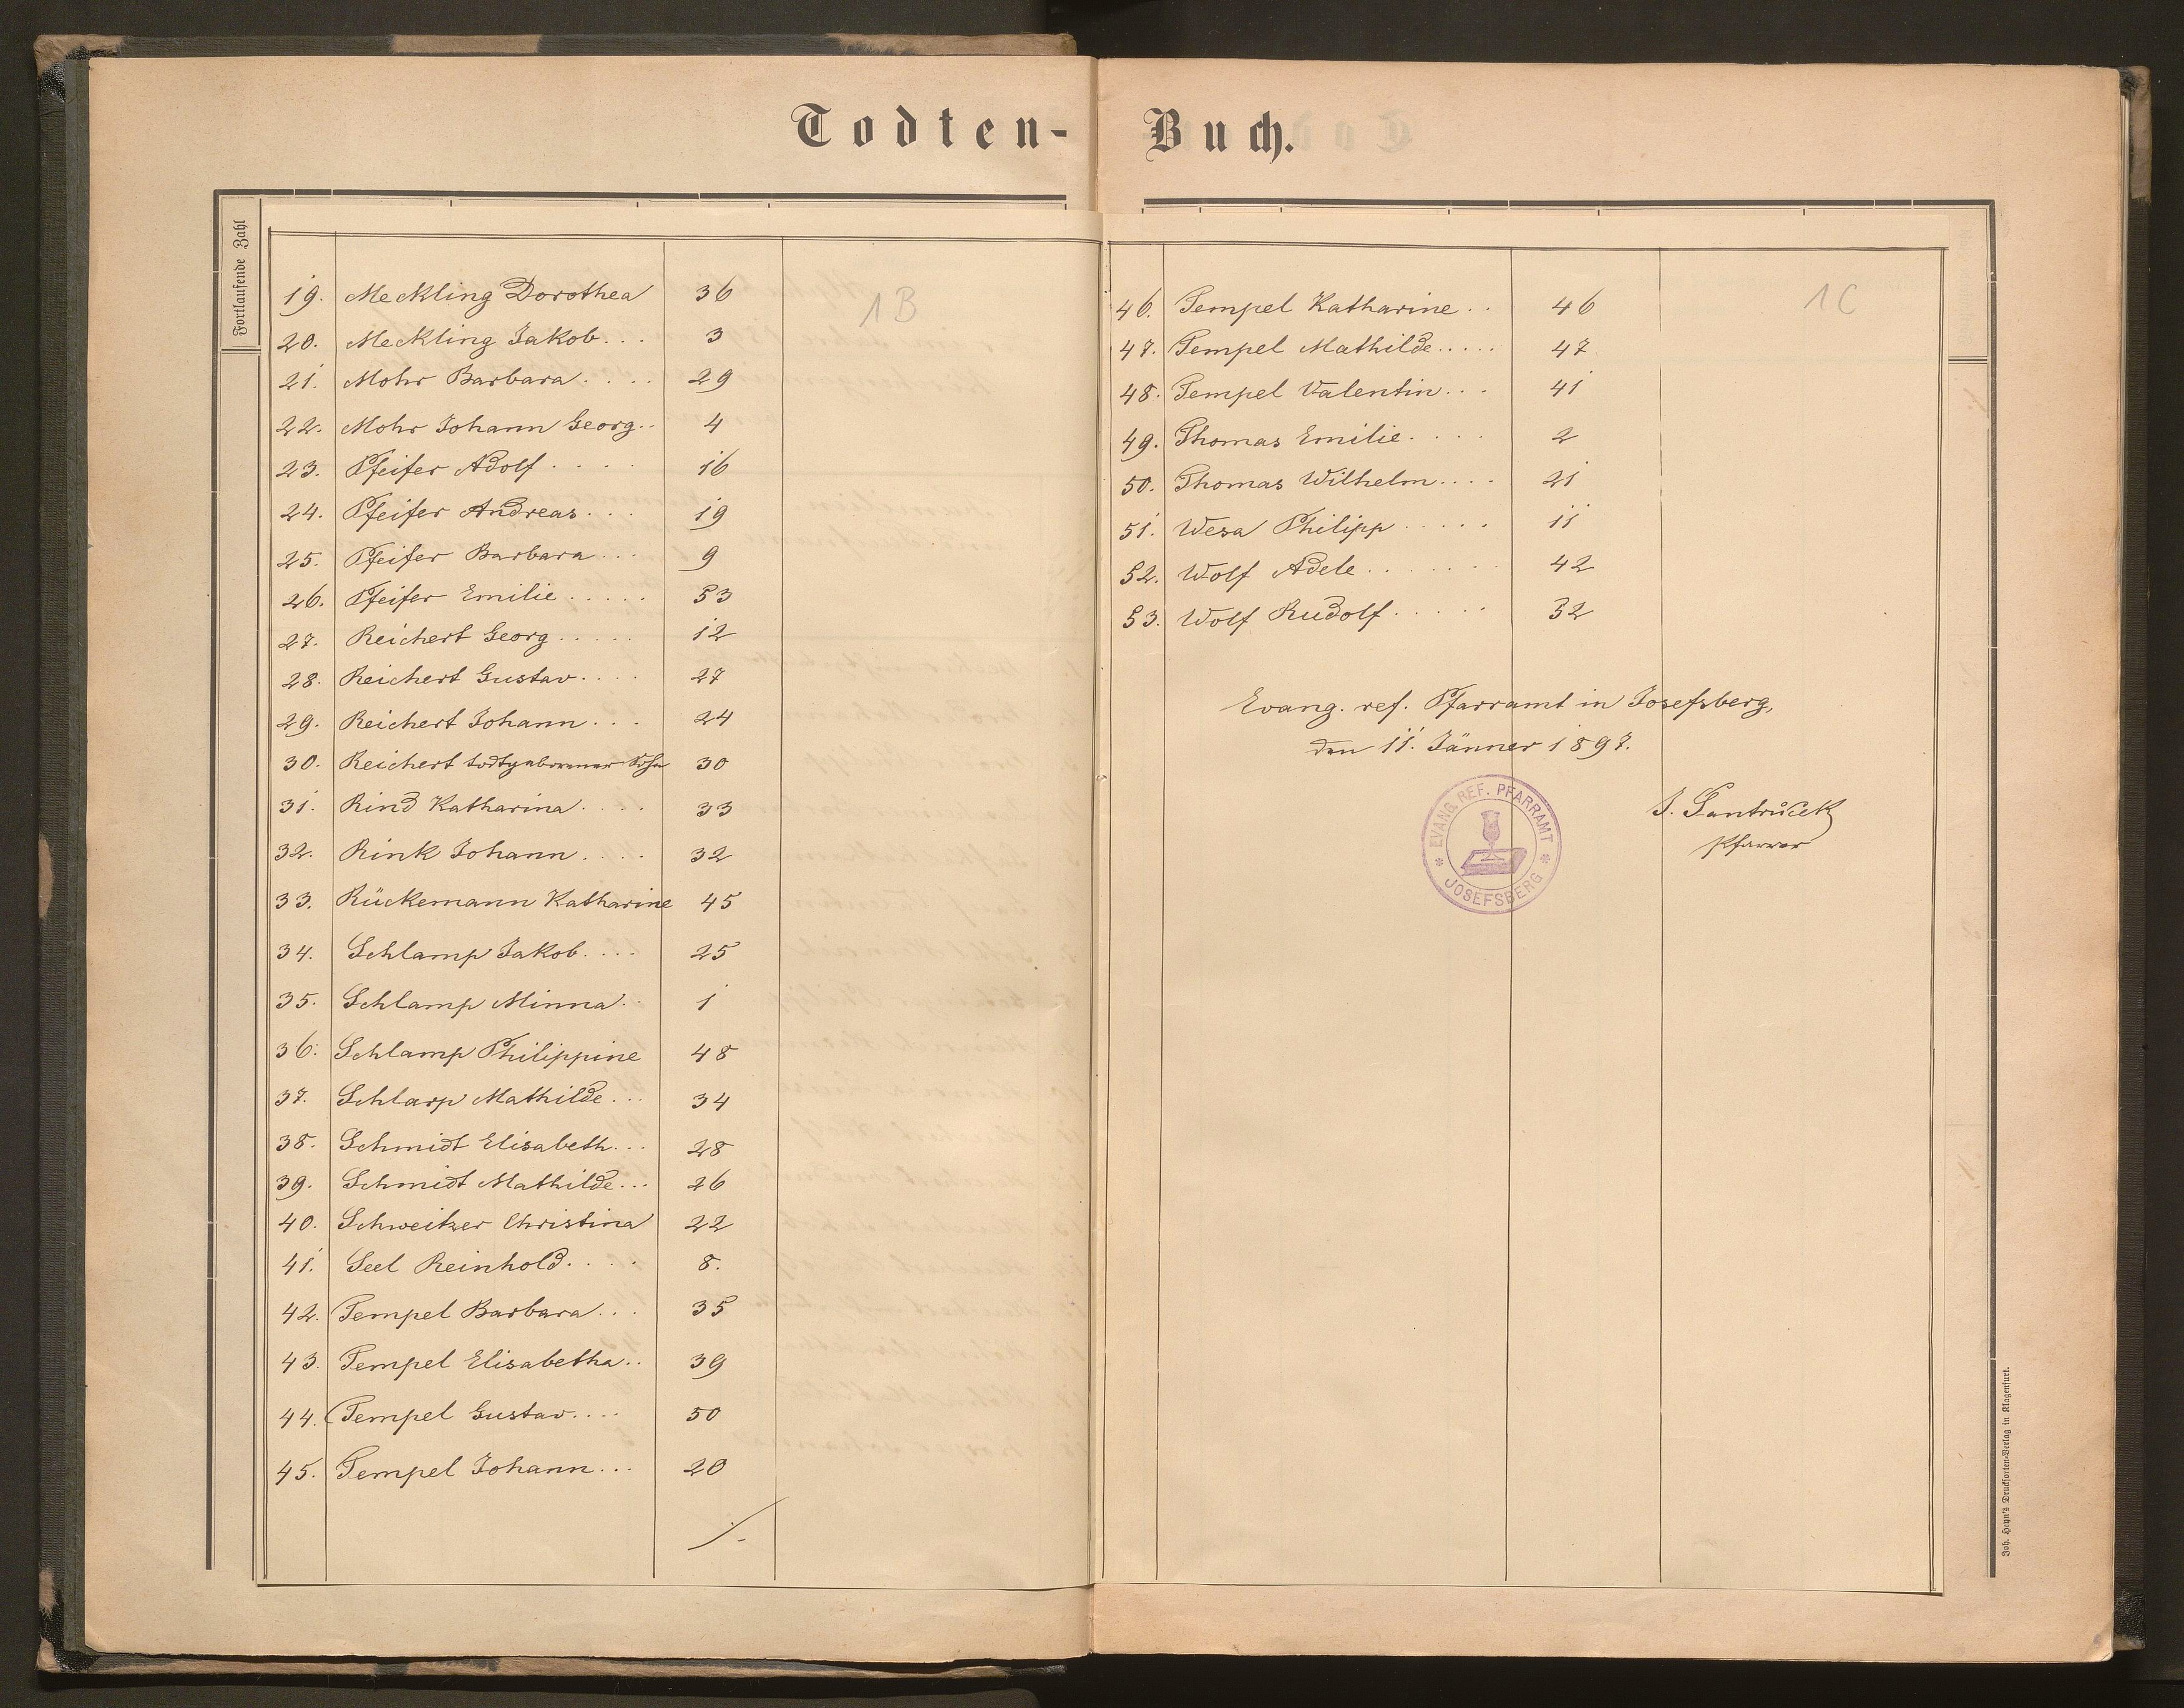 Todten-
Fortlaufende Zahl
1B
19. Meckling Dorothea 36
20. Meckling Jakob... 3
21. Mohr Barbara.... 29
22. Mohr Johann Georg.. 4
23. Pfeifer Adolf.... 16
24. Pfeifer Andreas... 19
25. Pfeifer Barbara... 9
26. Pfeifer Emilie..... 53
27. Reichert Georg..... 12
28. Reichert Gustav.... 27
29. Reichert Johann... 24
30. Reichert todtgeborener Sohn 30
31. Rind Katharina.... 33
32. Rink Johann.... 32
33. Rückemann Katharine 45
34. Schlamp Jakob.... 25
35. Schlamp Minna.. 1
36. Schlamp Philippine 48
37. Schlarp Mathilde... 34
38. Schmidt Elisabeth... 28
39. Schmidt Mathilde... 26
40. Schweitzer Christina 22
41. Seel Reinhold.... 8.
42. Tempel Barbara... 35
43. Tempel Elisabetha.. 39
44. Tempel Gustav.... 50
45. Tempel Johann... 20
./.
Buch.
1C
46. Tempel Katharine.. 46
47. Tempel Mathilde..... 47
48. Tempel Valentin... 41
49. Thomas Emilie.... 2
50. Thomas Wilhelm.... 21
51. Wesa Philipp..... 11
52. Wolf Adele....... 42
53. Wolf Rudolf..... 52
Evang. ref. Pfarramt in Josefsberg,
den 11. Jänner 1897.
EVANG. REF. PFARRAMT
* JOSEFSBERG *
J. Šantrůček
Pfarrer
Joh. Heyn's Drucksorten-Verlag in Klagenfurt.